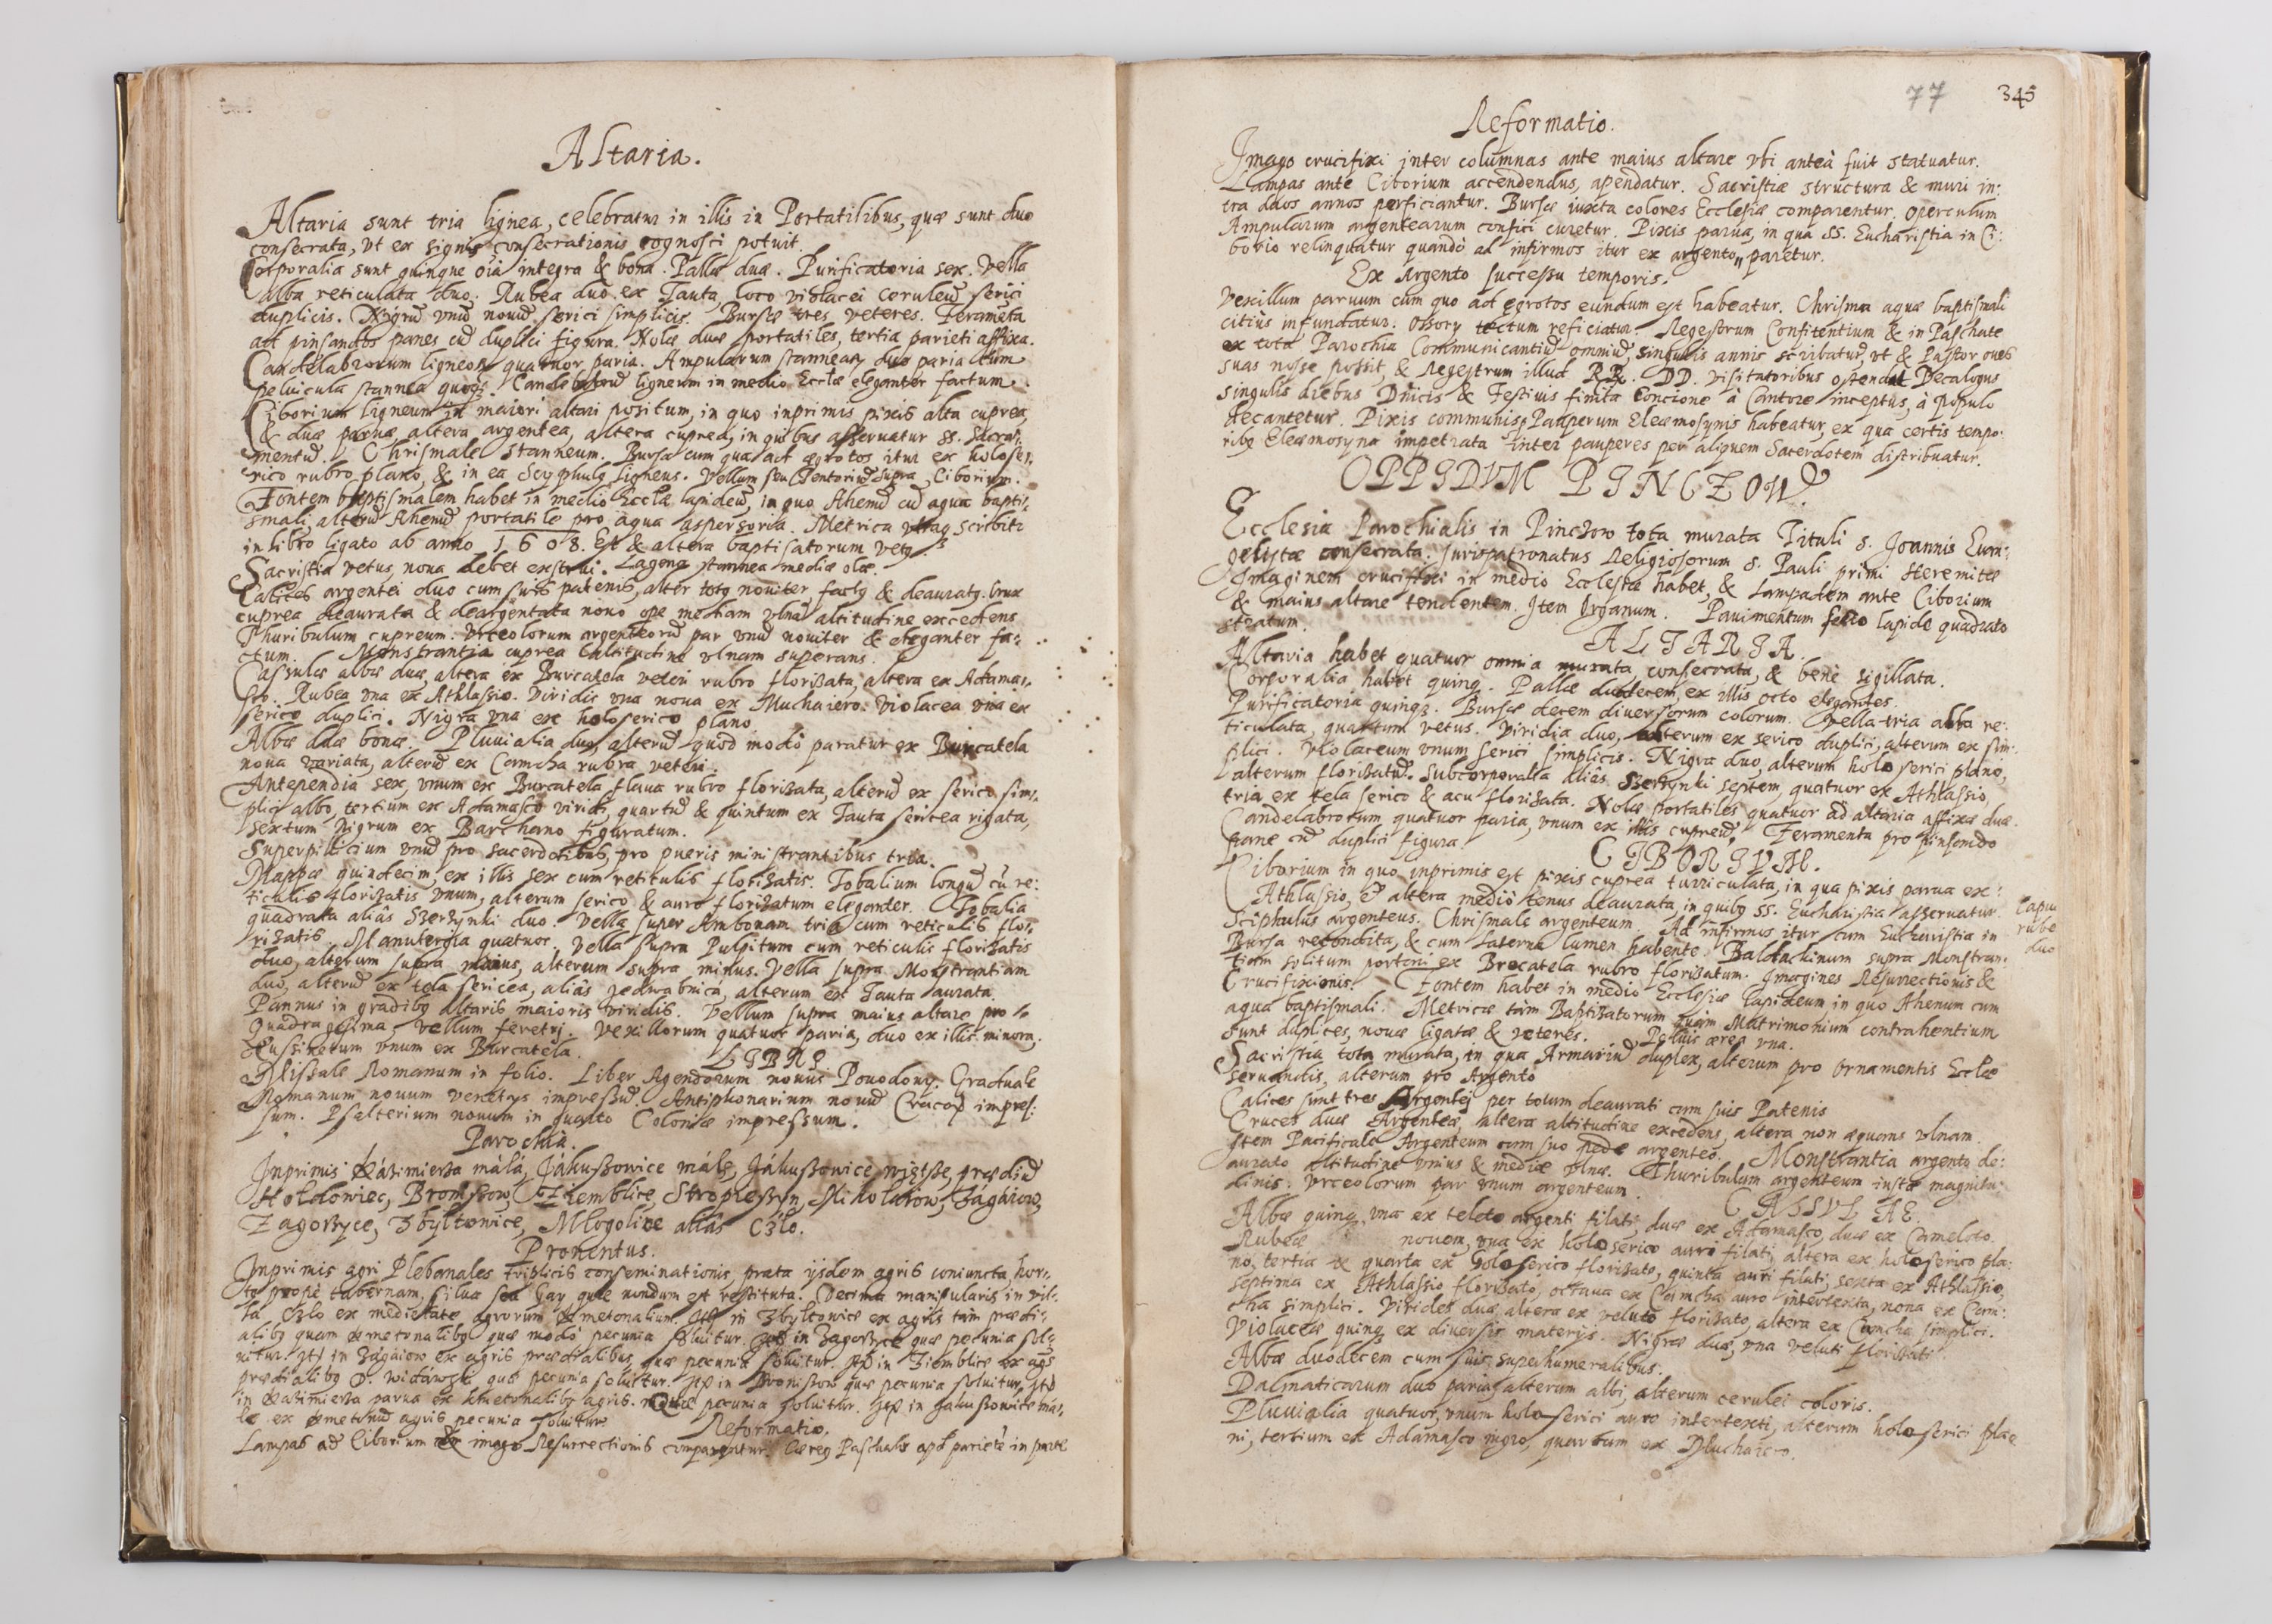 Altaria.
Altaria sunt tria lignea, celebratur in illis in Portatilibus, quæ sunt duo
consecrata, vt ex signis consecrationis cognosci potuit.
Corporalia sunt quinque oia integra & bona. Pallæ duæ. Purificatoria sex. Vella
alba reticulata duo. Rubea duo ex Tauta, loco violacei ceruleũ serici
duplicis. Nigrũ vnũ nouũ serici simplicis. Bursæ tres veteres. Feramẽta
ad pinsandos panes cũ duplici figura. Nolæ duæ portatiles, tertia parieti affixa.
Candelabrorum ligneoꝝ quatuor paria. Ampularum stannearꝝ duo paria cum
peluicula stannea quoqꝫ. Candelabrũ ligneum in medio Ecclæ eleganter factum.
Ciborium ligneum in maiori altari positum, in quo inprimis pixis alta cuprea,
& duæ paruæ, altera argentea, altera cuprea, in quibus asseruatur SS. Sacra:
mentũ. Chrismale stanneum. Bursa cum qua ad ægrotos itur ex holose:
rico rubro plano, & in ea Scyphulꝰ ligneus. Vellum seu Tentoriũ supra Ciborium.
Fontem baptismalem habet in medio Ecclæ lapideũ, in quo Ahenũ cũ aqua bapti:
smali, alterũ Ahenũ portatile pro aqua aspersoria. Metrica vtraqꝫ scribitr
in libro ligato ab anno 1608. Est & altera baptisatorum vetꝰ
Sacristia vetus, noua debet exstrui. Lagena stannea mediæ olæ.
Calices argentei duo cum suis patenis, alter totꝰ nouiter factꝰ & deauratꝰ. Crux
cuprea deaurata & deargentata nouo ope mediam vlnã altitudine excedens
Thuribulum cupreum. Vrceolorum argenteorũ par vnũ nouiter & eleganter fa:
ctum. Monstrantia cuprea altitudine vlnam superans.
Cassulæ albæ duæ, altera ex Burcatela veteri rubro florizata, altera ex Adamas:
sco. Rubea vna ex Athlassio. Viridis vna noua ex Muchaiero. Violacea vna ex
serico duplici. Nigra vna ex holoserico plano
Albæ duæ bonæ. Pluuialia duo, alterũ quod modo paratur ex Burcatela
noua variata, alterũ ex Camcha rubra veteri.
Antependia sex, vnum ex Burcatela flaua rubro florizata, alterũ ex serico sim:
plici albo, tertium ex Adamasco viridi, quartũ & quintum ex Tauta sericea rigata,
sextum nigrum ex Barchano figuratum.
Superpillicium vnũ pro sacerdotibus, pro pueris ministrantibus tria.
Mappæ quindecim, ex illis sex cum reticulis florizatis. Tobalium longũ cũ re:
ticulis florizatis vnum, alterum serico & auro florizatum eleganter. Tobalia
quadrata alias Szerzynki duo. Vella super Ambonam tria cum reticulis flo:
rizatis. Manutergia quatuor. Vella supra Pulpitum cum reticulis florizatis
duo, alterum supra maius, alterum supra minus. Vella supra Monstrantiam
duo, alterũ ex tela sericea, alias jedwabnica, alterum ex Tauta aurata.
Pannus in gradibꝰ altaris maioris viridis. Vellum supra maius altare pro
Quadragesima. Vellum feretri. Vexillorum quatuor paria, duo ex illis minora.
Pussinetum vnum ex Burcatela.
LIBRI
Missale Romanum in folio. Liber Agendorum nouus Pouodouꝰ. Graduale
Romanum nouum Venetys impressũ. Antiphonarium nouũ Cracoꝫ impres:
sum. Psalterium nouum in quarto Coloniæ impressum.
Parochia.
Inprimis Kázimierza málá, Jákuszowice máłe, Jákuszowice więtsze, prædiũ
Hołdowiec, Broniszow, Ziemblice, Stropieszyn, Mikolaiow, Zagáiow,
Zagorzyce, Zbyltowice, Młogolice aliâs Czło.
Prouentus.
Inprimis agri Plebanales triplicis conseminationis, prata ijsdem agris coniuncta, hor:
tꝰ prope tabernam, silua seu Gay quæ nondum est restituta. Decima manipularis in vil:
la Czło ex medietate agrorum kmetonalium. Itẽ in Zbyltowice ex agris tam prædi:
alibꝰ quam kmetonalibꝰ quæ modo pecunia soluitur. Itẽ in Zagorzyce quæ pecunia sol:
uitur. Itẽ in Zagáiow ex agris prædialibus, quæ pecunia soluitur. Itẽ in Ziemblice ex agris
prædialibꝰ D. Widáwski quæ pecunia soluitur. Itẽ in Broniszow quæ pecunia soluitur. Itẽ
in Kazimierza parua ex kmetonalibꝰ agris, quæ pecunia soluitur. Itẽ in Jakuszowice ma:
łe ex kmetonũ agris pecunia soluitur.
Reformatio.
Lampas ad Ciborium & imago Resurrectionis comparentur. Cereꝰ Paschalis apd̃ parietẽ in parte
77 345
Reformatio.
Imago crucifixi inter columnas ante maius altare vbi antea fuit statuatur.
Lampas ante Ciborium accendendus, apendatur. Sacristiæ structura & muri in:
tra duos annos perficiantur. Bursæ iuxta colores Ecclesiæ comparentur. Operculum
Ampularum argentearum confici curetur. Pixis parua, in qua SS. Eucharistia in Ci:
borio relinquatur quando ad infirmos itur ex argento paretur.
Ex Argento successu temporis.
Vexillum paruum cum quo ad egrotos eundum est habeatur. Chrisma aquæ baptismali
citiùs infundatur. Ossory tectum reficiatur. Regestrum Confitentium & in Paschate
ex tota Parochia Communicantiũ omniũ, singulis annis scribatur, vt & Pastor oues
suas nosse possit, & Regestrum illud RR. DD. visitatoribus ostendat. Decalogus
singulis diebus Dñicis & Festiuis finita Concione à Cantore inceptus, à populo
decantetur. Pixis communis Pauperum Eleæmosynis habeatur, ex qua certis tempo:
ribꝰ Eleæmosyna impetrata inter pauperes per aliquem Sacerdotem distribuatur.
OPPIDVM PINCZOW
Ecclesia Parochialis in Pinczow tota murata Tituli S. Joannis Euan:
gelistæ consecrata. Jurispatronatus Religiosorum S. Pauli primi Heremitæ
Imaginem crucifixi in medio Ecclesiæ habet, & Lampadem ante Ciborium
& maius altare tendentem. Item Organum. Pauimentum secto lapide quadrato
stratum.
ALTARIA.
Altaria habet quatuor omnia murata, consecrata, & bene sigillata.
Corporalia habet quinqꝫ. Pallæ duodecem, ex illis octo elegantes.
Purificatoria quinqꝫ. Bursæ decem diuersorum colorum. Vella tria alba re:
ticulata, quartum vetus. Viridia duo, alterum ex serico duplici, alterum ex sim:
plici. Violaceum vnum serici simplicis. Nigra duo, alterum holoserici plano,
alterum florizatũ. Subcorporalia aliâs Szerzynki septem, quatuor ex Athlassio,
tria ex tela serico & acu florizata. Nolæ portatiles quatuor ad altaria affixæ duæ.
Candelabrorum quatuor paria, vnum ex illis cupreũ. Feramenta pro pinsendo
pane cũ duplici figura.
CIBORIVM.
Ciborium in quo inprimis est pixis cuprea turriculata, in qua pixis parua ex
Athlassio, & altera medio tenus deaurata, in quibꝰ SS. Eucharistia asseruatur.
Sciphulus argenteus. Chrismale argenteum. Ad infirmos itur cum Eucharistia in
Bursa recondita, & cum Laterna lumen habente. Baldachinum supra Monstran:
tiam solitum portari ex Brocatela rubro florizatum. Imagines Resurrectionis &
Crucifixionis. Fontem habet in medio Ecclesiæ lapideum in quo Ahenum cum
aqua baptismali. Metricæ tàm Baptizatorum quàm Matrimonium contrahentium
sunt duplices, nouæ ligatæ & veteres. Peluis ærea vna.
Sacristia tota murata, in qua Armariũ duplex, alterum pro ornamentis Ecclæ
seruandis, alterum pro Argento
Calices sunt tres Argentej per totum deaurati cum suis Patenis
Cruces duæ Argenteæ, altera altitudine excedens, altera non æquans vlnam.
Item Pacificale Argenteum cum suo pede argenteo. Monstrantia argento de:
aurato altitudine vnius & mediæ vlnæ. Thuribulum argenteum iustæ magnitu:
dinis. Vrceolorum par vnum argenteum.
CASSVLAE.
Albæ quinqꝫ vna ex teleto argenti filati, duæ ex Adamasco, duæ ex Cameloto.
Rubeæ nouem, vna ex holoserico auri filati, altera ex holoserico pla:
no, tertia & quarta ex holoserico florizato, quinta auri filati, sexta ex Athlassio,
septima ex Athlassio florizato, octaua ex Camcha auro intertexta, nona ex Cam:
cha simplici. Virides duæ, altera ex veluto florizato, altera ex Camcha simplici.
Violaceæ quinqꝫ ex diuersis materijs. Nigræ duæ, vna veluti florizati
Albæ duodecem cum suis superhumeralibus.
Dalmaticarum duo paria, alterum albi, alterum cerulei coloris.
Pluuialia quatuor, vnum holoserici auro intertexti, alterum holoserici pla:
ni, tertium ex Adamasco nigro, quartum ex Muchaiero.
rube
duo